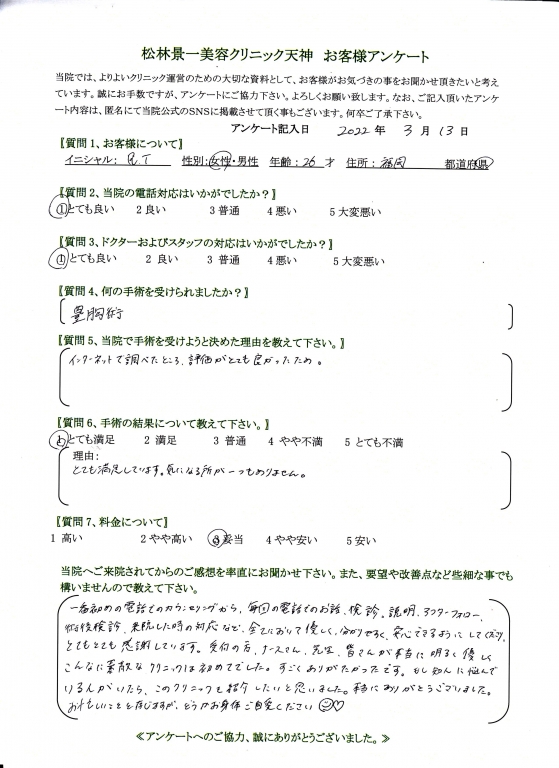 松林景一美容クリニック天神　お客様アンケート
当院では、よりよいクリニック運営のための大切な資料として、お客様がお気づきの事をお聞かせ頂きたいと考え
ています。誠にお手数ですが、アンケートにご協力下さい。よろしくお願い致します。なお、ご記入頂いたアンケ
ート内容は、匿名にて当院公式のSNSに掲載させて頂く事もございます。何卒ご了承下さい。
アンケート記入日　2022 年　3 月　13 日
【質問1、お客様について】
イニシャル： R.T　性別：女性・男性　年齢：26 才　住所：福岡　都道府県
【質問2、当院の電話対応はいかがでしたか？】
1 とても良い　2 良い　3 普通　4 悪い　5 大変悪い
【質問3、ドクターおよびスタッフの対応はいかがでしたか？】
1 とても良い　2 良い　3 普通　4 悪い　5 大変悪い
【質問4、何の手術を受けられましたか？】
豊胸術
【質問5、当院で手術を受けようと決めた理由を教えて下さい。】
インターネットで調べたところ、評価がとても良かったため。
【質問6、手術の結果について教えて下さい。】
1 とても満足　2 満足　3 普通　4 やや不満　5 とても不満
理由：
とても満足しています。気になる所が一つもありません。
【質問7、料金について】
1 高い　2 やや高い　3 妥当　4 やや安い　5 安い
当院へご来院されてからのご感想を率直にお聞かせ下さい。また、要望や改善点など些細な事でも
構いませんので教えて下さい。
一番初めの電話でのカウンセリングから、毎回の電話でのお話、検診、説明、アフターフォロー、
術後検診、来院した時の対応など、全てにおいて優しく、分かりやすく、安心できるように してくださり、
とてもとても 感謝しています。受付の方、ナースさん、先生、皆さんが本当に 明るく 優しく
こんなに素敵な クリニックは初めてでした。すごくありがたかったです。もし知人に悩んで
いる人がいたら、このクリニックを紹介したいと思いました。本当にありがとうございました。
お忙しいことと存じますが、どうかお身体ご自愛ください ☺♡
≪アンケートへのご協力、誠にありがとうございました。≫